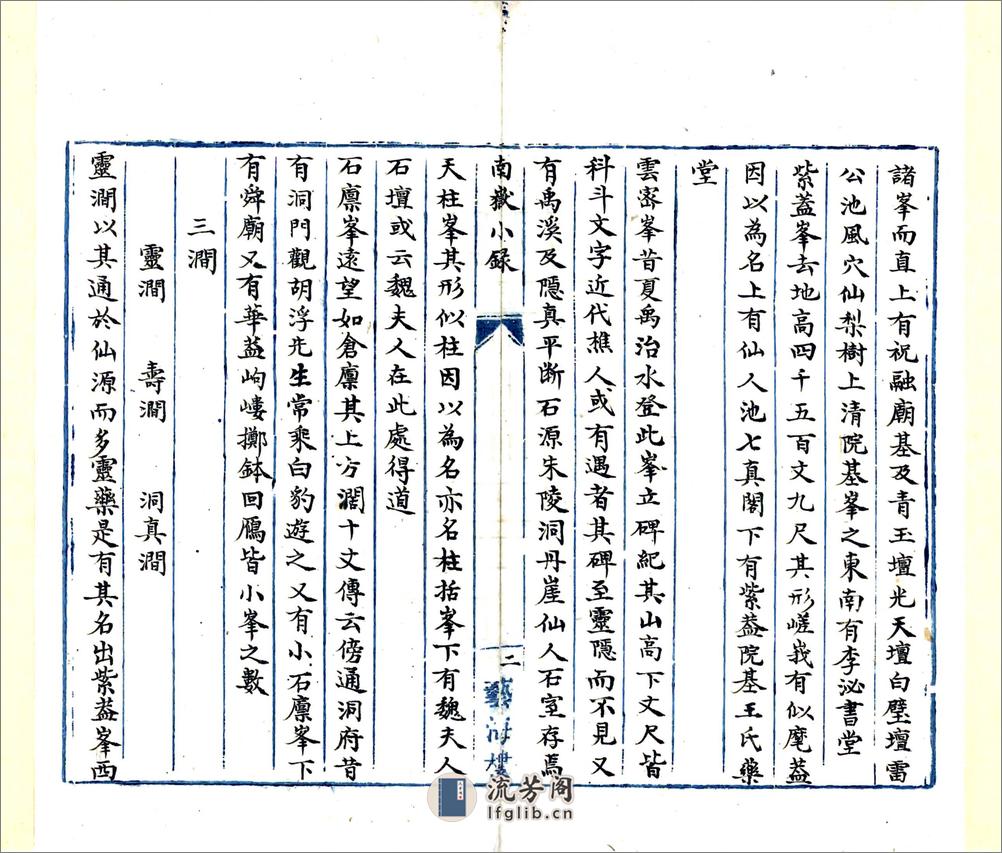 諸峯而直上有祝融廟基及青玉壇光天壇白璧壇雷
公池風穴仙梨樹上清院基峯之東南有李泌書堂
紫葢峯去地高四千五百丈九尺其形嵯峩有似麾葢
因以為名上有仙人池七真閣下有紫葢院基王氏藥
堂
雲密峯昔夏禹治水登此峯立碑紀其山高下丈尺皆
科斗文字近代樵人或有遇者其碑至靈隱而不見又
有禹溪及隱真平断石源朱陵洞丹崖仙人石室存焉
南嶽小録
二
藝海樓
天柱峯其形似柱因以為名亦名柱括峯下有魏夫人
石壇或云魏夫人在此處得道
石廪峯遠望如倉廪其上方濶十丈傳云傍通洞府昔
有洞門觀胡浮先生常乘白豹遊之又有小石廪峯下
有舜廟又有華葢岣嶁擲鉢回鴈皆小峯之數
三澗
靈澗 壽澗 洞真澗
靈澗以其通於仙源而多靈藥是有其名出紫葢峯西
流芳阁
lfglib.cn